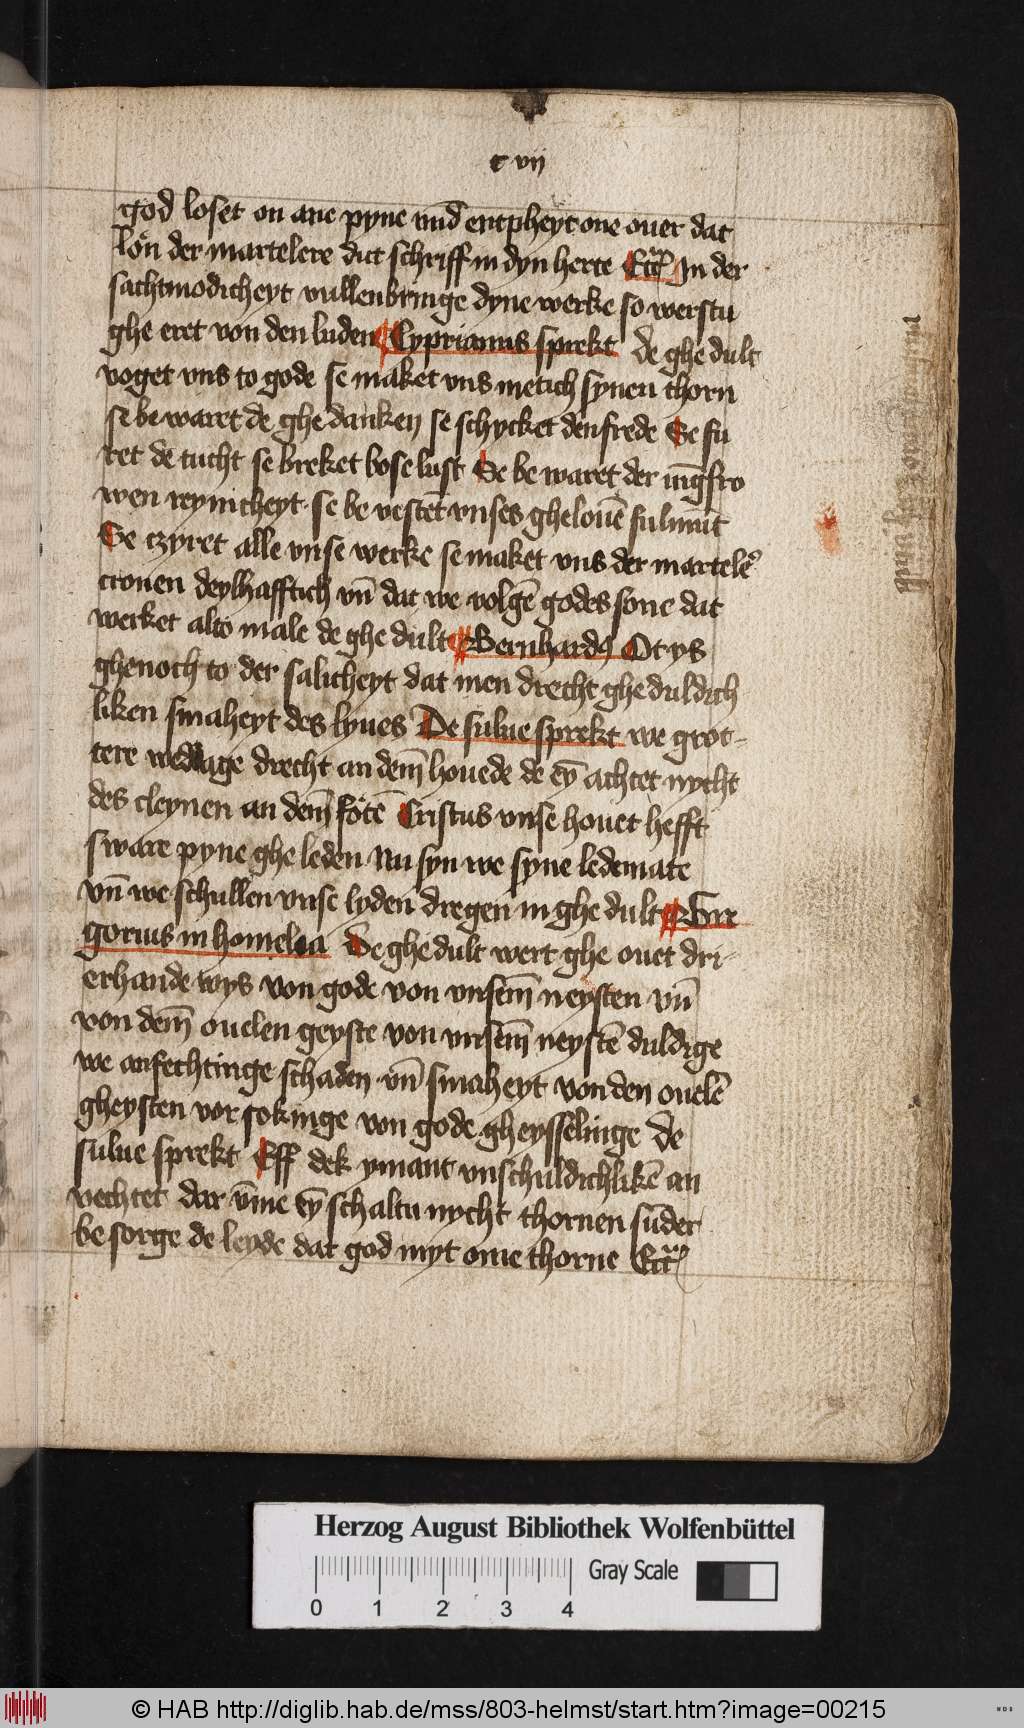 c vij
god loset on ane pyne vnd entpheyt one ouer dat
lon der martelere dut schriff in dyn herte Ecc̄ In der
sachtmodicheyt vullenbringe dyne werke so werstu
ghe eret von den luden Cyprianus sprekt de ghe dult
voget vns to gode se maket vns metich synen thorn
se be waret de ghe danken se schycket den frede Se fu
ret de tucht se breket bose lust Se be waret der iūgfro
wen reynicheyt se be vestet vnses ghelouē fulmūt
Se czyret alle vnse werke se maket vns der martelē
cronen deylhafftich vn̄ dat we volgē godes sone dat
werket alto male de ghe dult Bernhardꝯ Ot ys
ghenoch to der salicheyt dat men drecht ghe duldich
liken smaheyt des lyues De sulue sprekt we grot-
tere wedage drecht an dem̄ houede de ey̅ achtet nycht
des cleynen an dem̄ fotē Cristus vnse houet hefft
sware pyne ghe leden Nu syn we syne ledemate
vn̄ we schullen vnse lyden dregen in ghe dult Gre
gorius in homelia De ghe dult wert ghe ouet dri-
erhande wys von gode von vnsem̄ neysten vn̄
von dem̄ ouelen geyste von vnsem̄ neystē duldige
we anfechtinge schaden vn̄ smaheyt von den ouelē
gheysten vor sokinge von gode gheysselinge de
sulue sprekt Eff dek ymant vnschuldichlikē an
vechtet dar v̄me ey̅ schaltu nycht thornen sūder
be sorge de leyde dat god myt ome thorne Ecc̄
Herzog August Bibliothek Wolfenbüttel
Gray Scale
0 1 2 3 4
© HAB http://diglib.hab.de/mss/803-helmst/start.htm?image=00215